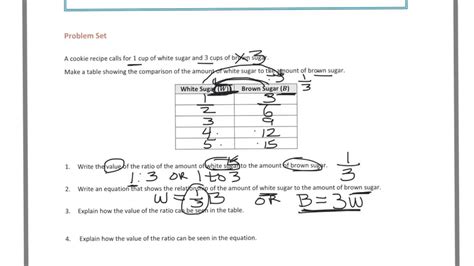 Problem Set
x3
A cookie recipe calls for 1 cup of white sugar and 3 cups of brown sugar.
Make a table showing the comparison of the amount of white sugar to the amount of brown sugar.
÷3 1/3
White Sugar (W) Brown Sugar (B)
1 3
2 6
3 9
4 12
5 15
1. Write the value of the ratio of the amount of white sugar to the amount of brown sugar.
1:3 OR 1 to 3
1/3
2. Write an equation that shows the relationship of the amount of white sugar to the amount of brown sugar.
W = 1/3 B OR B = 3W
3. Explain how the value of the ratio can be seen in the table.
4. Explain how the value of the ratio can be seen in the equation.